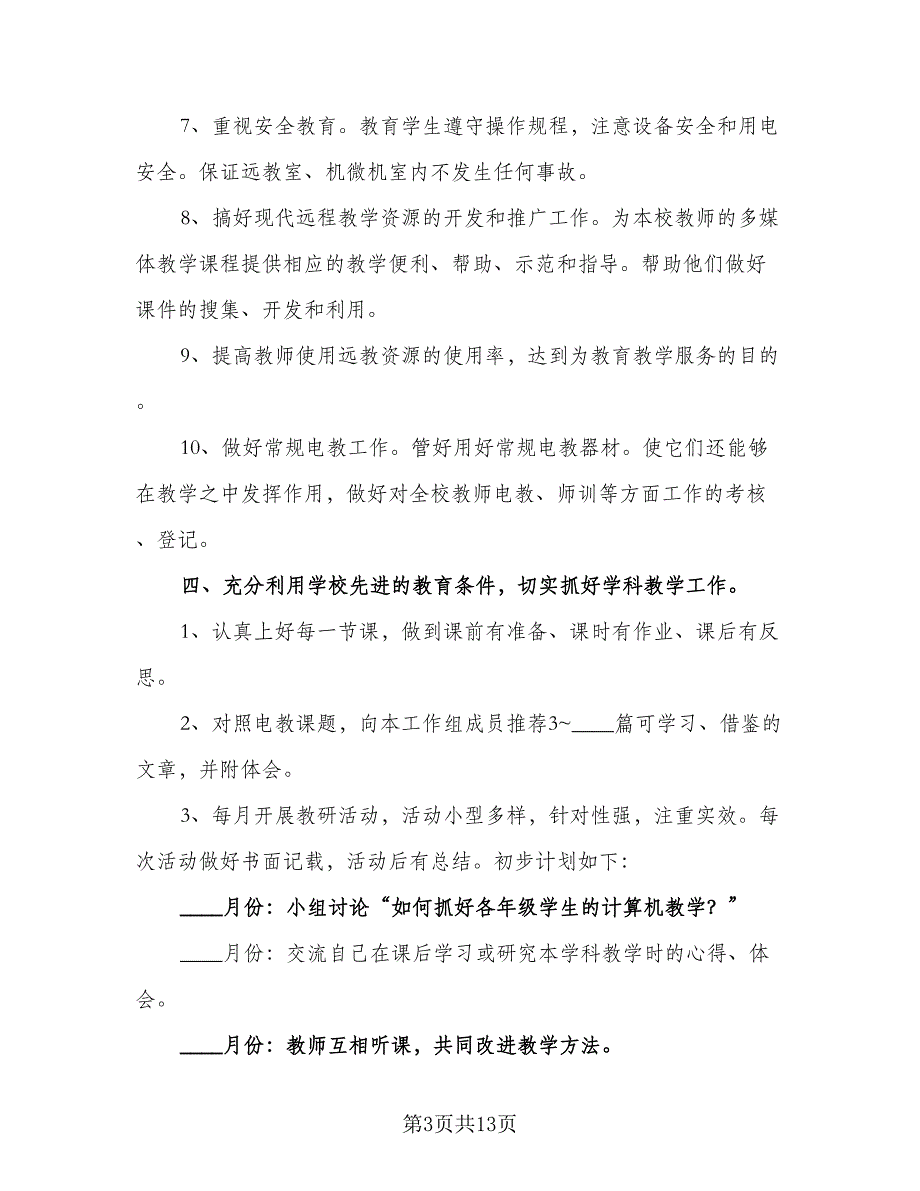 7、重视安全教育。教育学生遵守操作规程，注意设备安全和用电
安全。保证远教室、机微机室内不发生任何事故。
8、搞好现代远程教学资源的开发和推广工作。为本校教师的多媒
体教学课程提供相应的教学便利、帮助、示范和指导。帮助他们做好
课件的搜集、开发和利用。
9、提高教师使用远教资源的使用率，达到为教育教学服务的目的
。
10、做好常规电教工作。管好用好常规电教器材。使它们还能够
在教学之中发挥作用，做好对全校教师电教、师训等方面工作的考核
、登记。
四、充分利用学校先进的教育条件，切实抓好学科教学工作。
1、认真上好每一节课，做到课前有准备、课时有作业、课后有反
思。
2、对照电教课题，向本工作组成员推荐3~____篇可学习、借鉴的
文章，并附体会。
3、每月开展教研活动，活动小型多样，针对性强，注重实效。每
次活动做好书面记载，活动后有总结。初步计划如下：
____月份：小组讨论“如何抓好各年级学生的计算机教学？”
____月份：交流自己在课后学习或研究本学科教学时的心得、体
会。
____月份：教师互相听课，共同改进教学方法。
第3页共13页